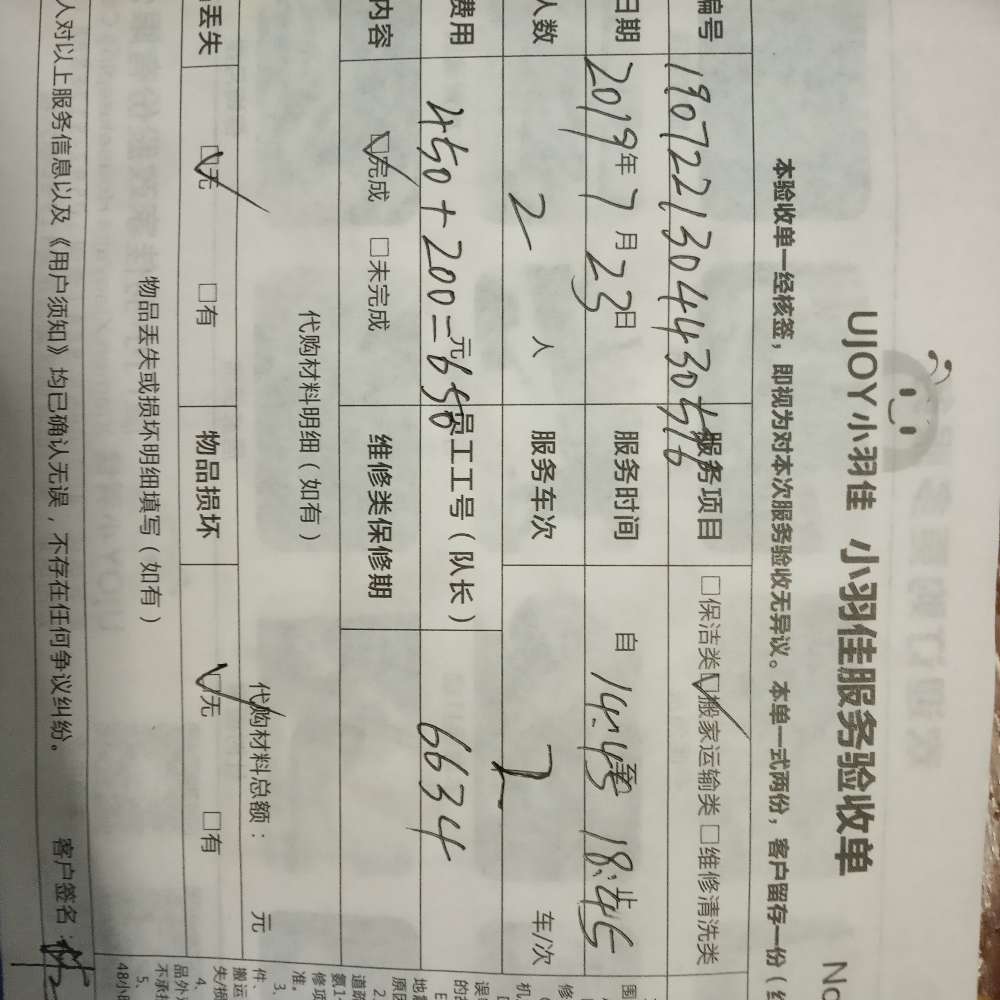 UJOY小羽佳 小羽佳服务验收单 NO
本验收单一经核签，即视为对本次服务验收无异议。本单一式两份，客户留存一份（
编号 1907221304430516 服务项目 □保洁类 ☑搬家运输类 □维修清洗类
日期 2019年7月23日 服务时间 自 14:45 至 18:45 止
人数 2 人 服务车次 2 车/次
费用 450+200=650 元 员工工号（队长） 6634
内容 ☑完成 □未完成 维修类保修期
代购材料明细（如有） 代购材料总额： 元
丢失 ☑无 □有 物品损坏 ☑无 □有
物品丢失或损坏明细填写（如有）
人对以上服务信息以及《用户须知》均已确认无误，不存在任何争议纠纷。 客户签名：